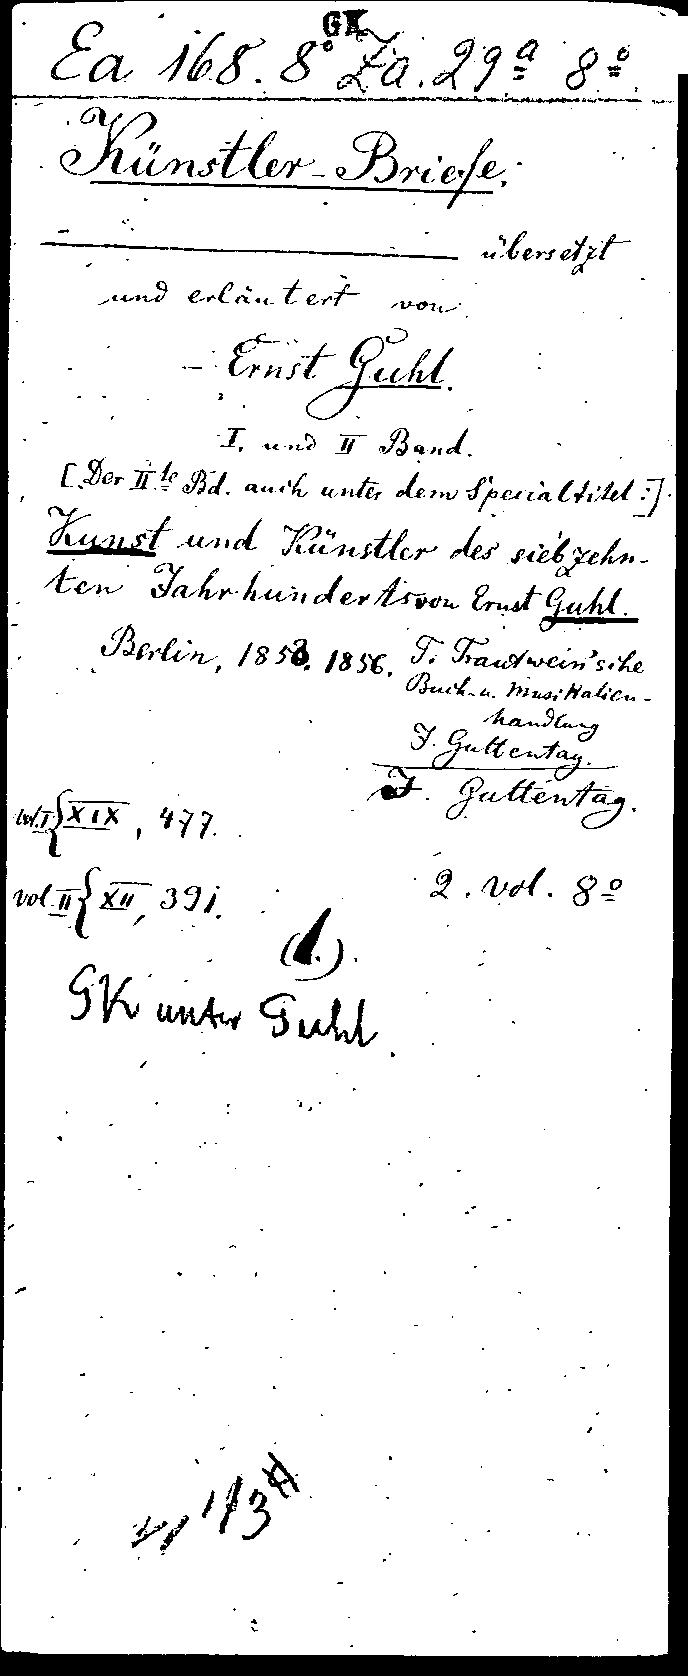 GK
Ea 168. 8° Za. 29ª 8°.
Künstler-Briefe.
übersetzt
und erläutert von
Ernst Guhl.
I. und II Band.
[Der IIte Bd. auch unter dem Specialtitel:]
Kunst und Künstler des siebzehn-
ten Jahrhunderts von Ernst Guhl.
Berlin, 1853. 1856. T. Trautwein'sche
Buch- u. Musikalien-
handlung
J. Guttentag.
J. Guttentag.
vol. I { XIX, 477.
vol. II { XII, 391. 2. vol. 8°
(1.).
GK unter Guhl